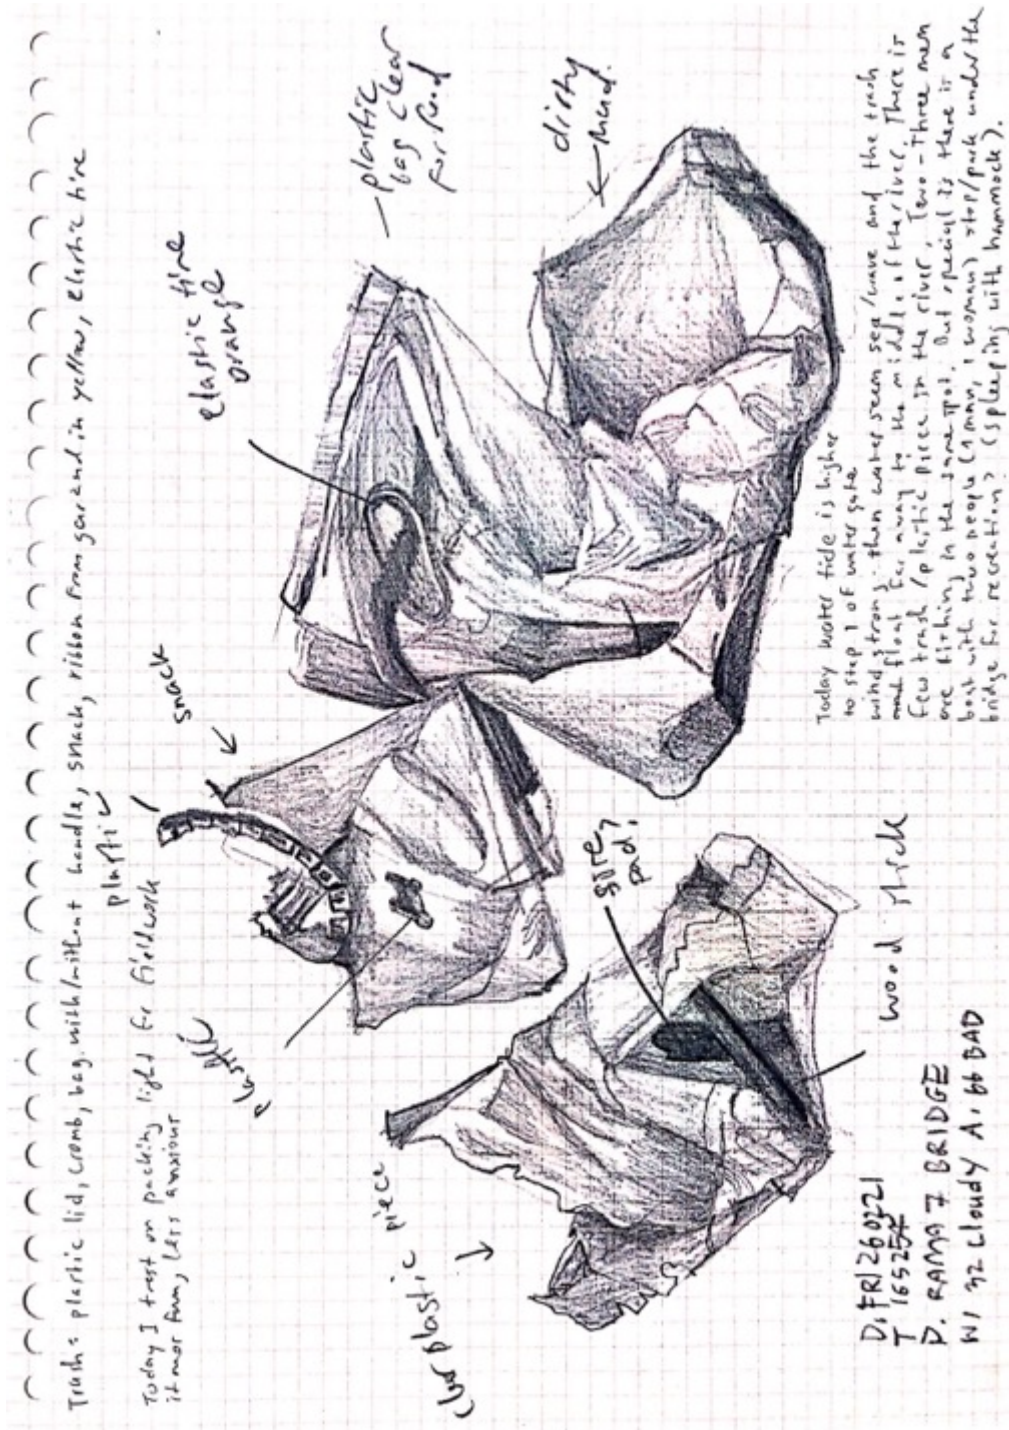 Trash: plastic lid, comb, bag with/without handle, snack, ribbon from garland in yellow, elastic tire
plastic
Today I trust on packing light for fieldwork
it mor fun, less anxiour
snack
plastic
elastic tire
orange
plastic
bag clear
for food
dirty
mud.
clear plastic piece
pad?
wood stick
Today water tide is higher
to step 1 of water gate
wind strong then water seem sea/wave and the trash
and float far away to the middle of the river. There is
few trash/plastic piece in the river. Two-three men
are fishing in the same spot. But special is there is a
boat with two people (1 man, 1 woman) stop/park under the
bridge for recreation? (sleeping with hammock).
D. FRI 260221
T 1652
P. RAMA 7 BRIDGE
W/ 32 cloudy A. 66 BAD